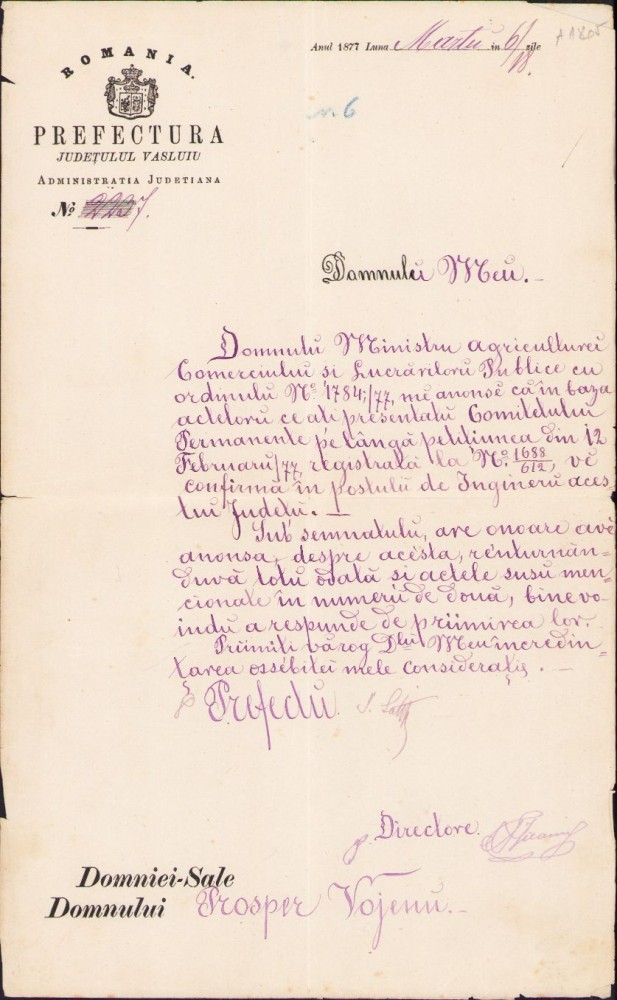 ROMANIA.
PREFECTURA
JUDEȚULUL VASLUIU
ADMINISTRATIA JUDETIANA
No 2227.
Anul 1877 Luna Martiu in 6/18 zile
n. 6
Domnului Meu.-
Domnulu Ministru agriculturei
Comerciului si Lucrăriloru Publice cu
ordinulu No 1784,/77, me anonse că în baza
acteloru ce ati presentatu Comitetului
Permanente pe lângă petitiunea din 12
Februaru/77, registrată la No. 1688/612, ve
confirmă în postulu de Ingineru aces
tui Judetu.-
Sub semnatulu, are onoare avĕ
anonsa, despre acésta, rĕnturnân=
duvă totu odată si actele susu men,
cionate în numerŭ de două, binevo-
indu a respunde de priimirea lor.
Priimiti vărog Dlui Meu incredin,
tarea ossĕbitei mele consideratii.-
p Prefectu.
p. Directore.
Domniei-Sale
Domnului Prosper Vojenu.-